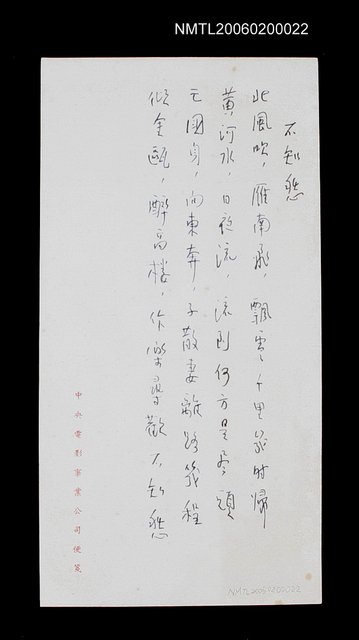 NMTL20060200022
不知愁
北風吹，雁南飛，飄雲千里幾時歸
黃河水，日夜流，流到何方是盡頭
亡國身，向東奔，子散妻離路幾程
傾金甌，醉高樓，作樂尋歡不知愁
中央電影事業公司便箋
NMTL20060200022